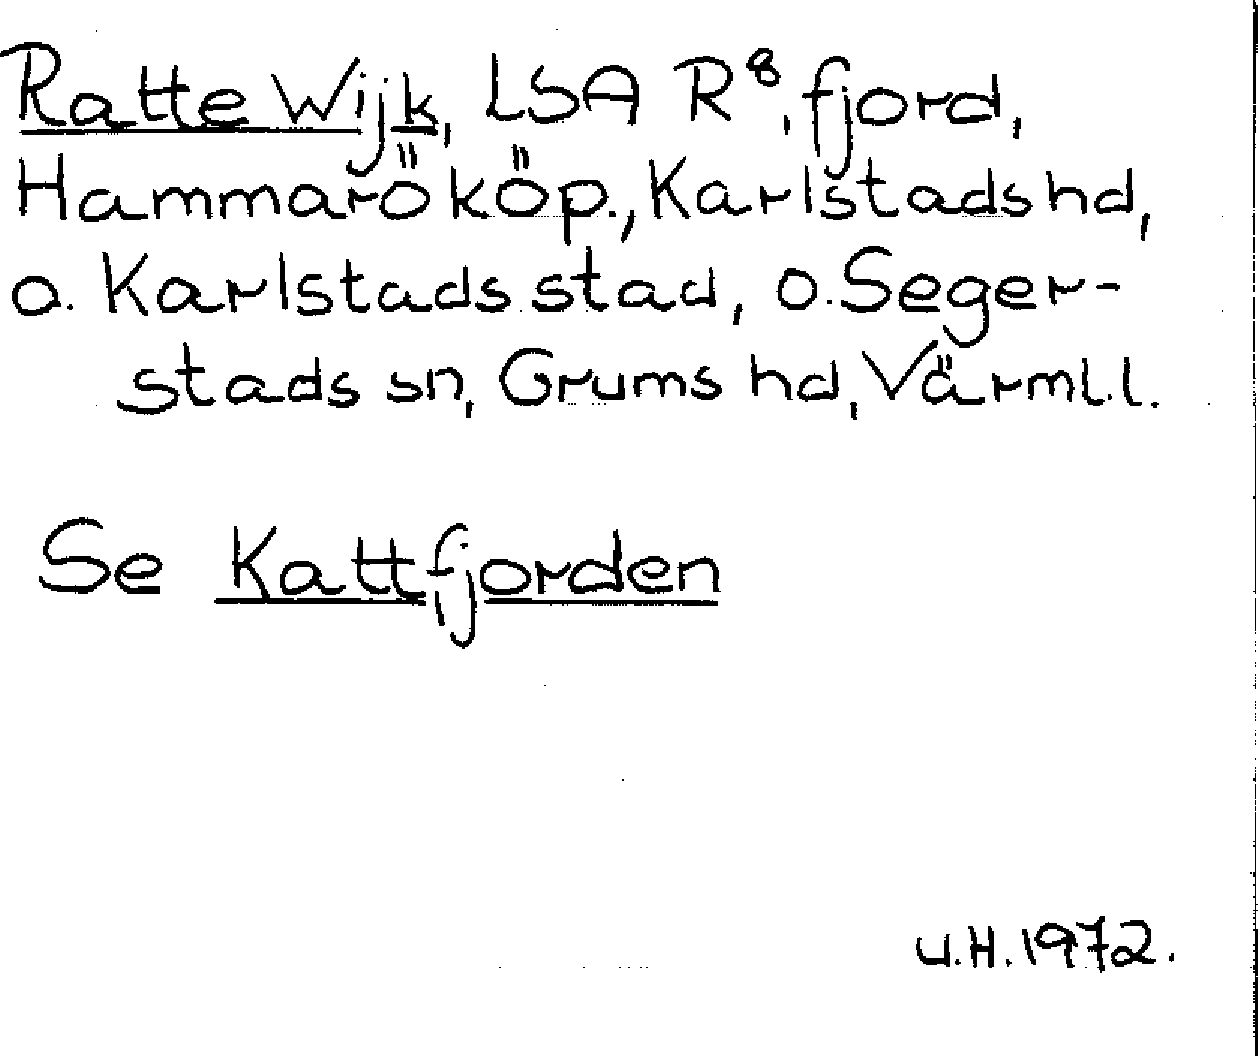 Ratte Wijk, LSA R⁸, fjord,
Hammarö köp., Karlstads hd,
o. Karlstads stad, o. Seger-
stads sn, Grums hd, Värml.l.
Se Kattfjorden
U.H. 1972.